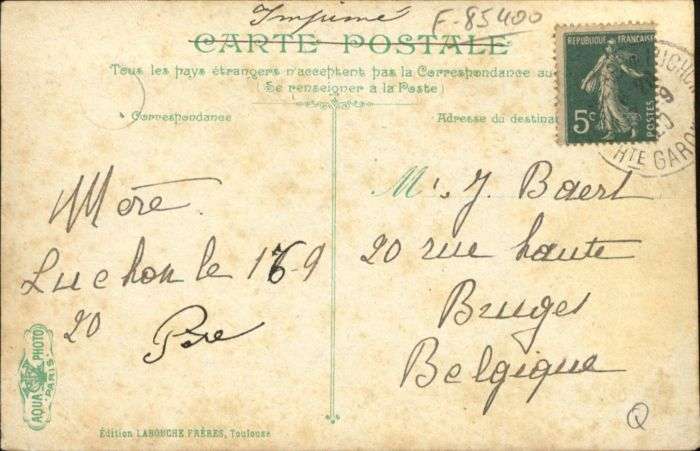 Imprimé
F-85400
CARTE POSTALE
Tous les pays étrangers n'acceptent pas la Correspondance au
(Se renseigner à la Poste)
Correspondance
Adresse du destinat
REPUBLIQUE FRANÇAISE
5c
POSTES
HTE GARO
Mère
Luchon le 16-9
20
Père
M. J. Baert
20 rue haute
Bruges
Belgique
AQUA PHOTO
PARIS
Édition LABOUCHE FRÈRES, Toulouse
Q